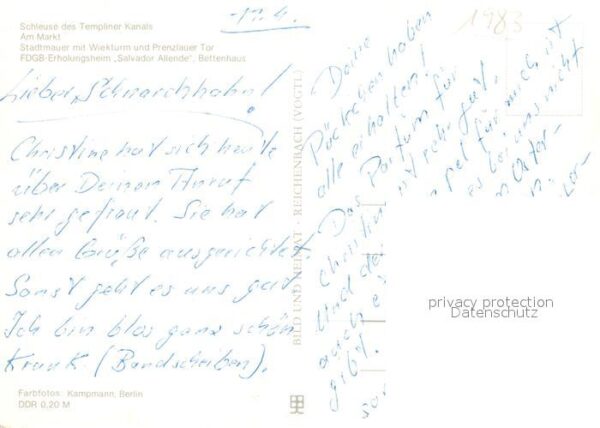 Schleuse des Templiner Kanals
Am Markt
Stadtmauer mit Wiekturm und Prenzlauer Tor
FDGB-Erholungsheim „Salvador Allende", Bettenhaus
1983
Lieber Schnarchhahn!
Christine hat sich heute
über Deinen Anruf
sehr gefreut. Sie hat
allen Grüße ausgerichtet.
Sonst geht es uns gut
Ich bin blos ganz schön
Krank (Bandscheiben).
BILD UND HEIMAT · REICHENBACH (VOGTL)
Deine
Päckchen haben
alle erhalten!
Das Parfüm für
Christin ist sehr gut.
Und de pel für mich ist
auch es bei uns nicht
gibt. Oster-
privacy protection
Datenschutz
Farbfotos: Kampmann, Berlin
DDR 0,20 M